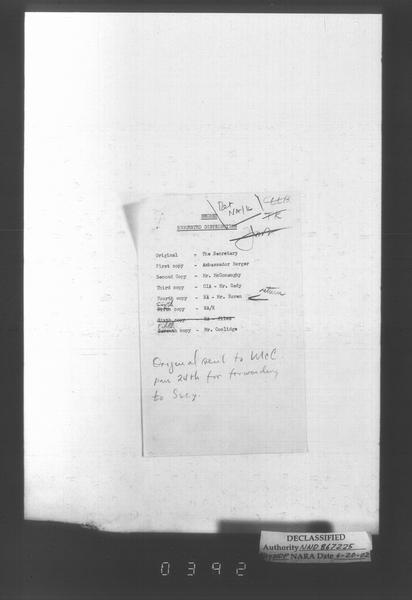 Ret
NA/K
SECRET
SUGGESTED DISTRIBUTION
Original - The Secretary
First copy - Ambassador Berger
Second Copy - Mr. McConaughy
Third copy - CIA - Mr. Cady
Fourth copy - NA - Mr. Koren return
Sixth
Fifth copy - NA/K
Sixth copy - NA - files
Fifth
Seventh copy - Mr. Coolidge
Original sent to McC
Jan 24th for forwarding
to Secy.
DECLASSIFIED
Authority NND 867225
NARA Date 6-20-02
0392